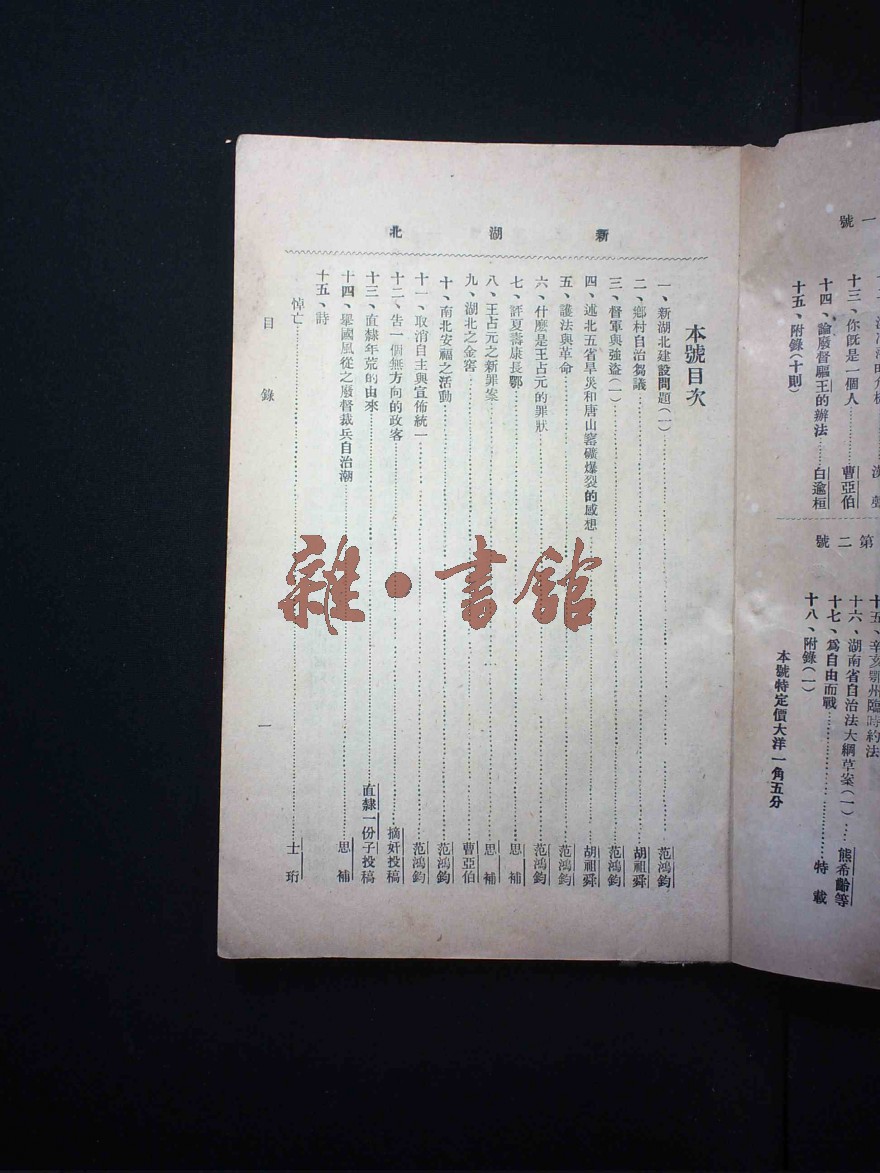 一號
十三、你既是一個人………曹亞伯
十四、論廢督驅王的辦法……白逾桓
十五、附錄(十則)
第二號
十五、辛亥鄂州臨時約法
十六、湖南省自治法大綱草案(一)…熊希齡等
十七、爲自由而戰………………特載
十八、附錄(一)
本號特定價大洋一角五分
新湖北
本號目次
一、新湖北建設問題(一)………………范鴻鈞
二、鄉村自治芻議………………胡祖舜
三、督軍與強盜(一)………………范鴻鈞
四、述北五省旱災和唐山窰礦爆裂的感想………………胡祖舜
五、護法與革命………………范鴻鈞
六、什麽是王占元的罪狀………………范鴻鈞
七、評夏壽康長鄂………………思補
八、王占元之新罪案………………思補
九、湖北之金窖………………曹亞伯
十、南北安福之活動………………范鴻鈞
十一、取消自主與宣佈統一………………范鴻鈞
十二、告一個無方向的政客………………摘奸投稿
十三、直隸年荒的由來………………直隸一份子投稿
十四、舉國風從之廢督裁兵自治潮………………思補
十五、詩
悼亡………………士珩
目錄
一
雜·書館